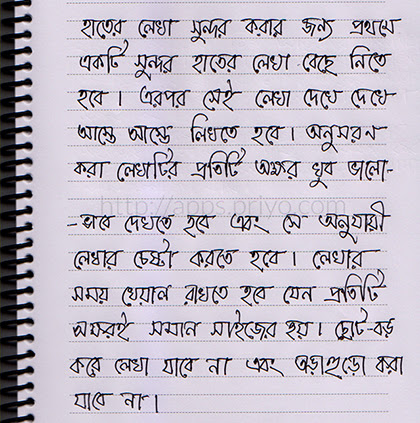 হাতের লেখা সুন্দর করার জন্য প্রথমে
একটি সুন্দর হাতের লেখা বেছে নিতে
হবে । এরপর সেই লেখা দেখে দেখে
আস্তে আস্তে লিখতে হবে । অনুসরন
করা লেখাটির প্রতিটি অক্ষর খুব ভালো-
http://apps.priyo.com
-ভাবে দেখতে হবে এবং সে অনুযায়ী
লেখার চেষ্টা করতে হবে । লেখার
সময় খেয়াল রাখতে হবে যেন প্রতিটি
অক্ষরই সমান সাইজের হয় । ছোট-বড়
করে লেখা যাবে না এবং তাড়াহুড়ো করা
যাবে না ।